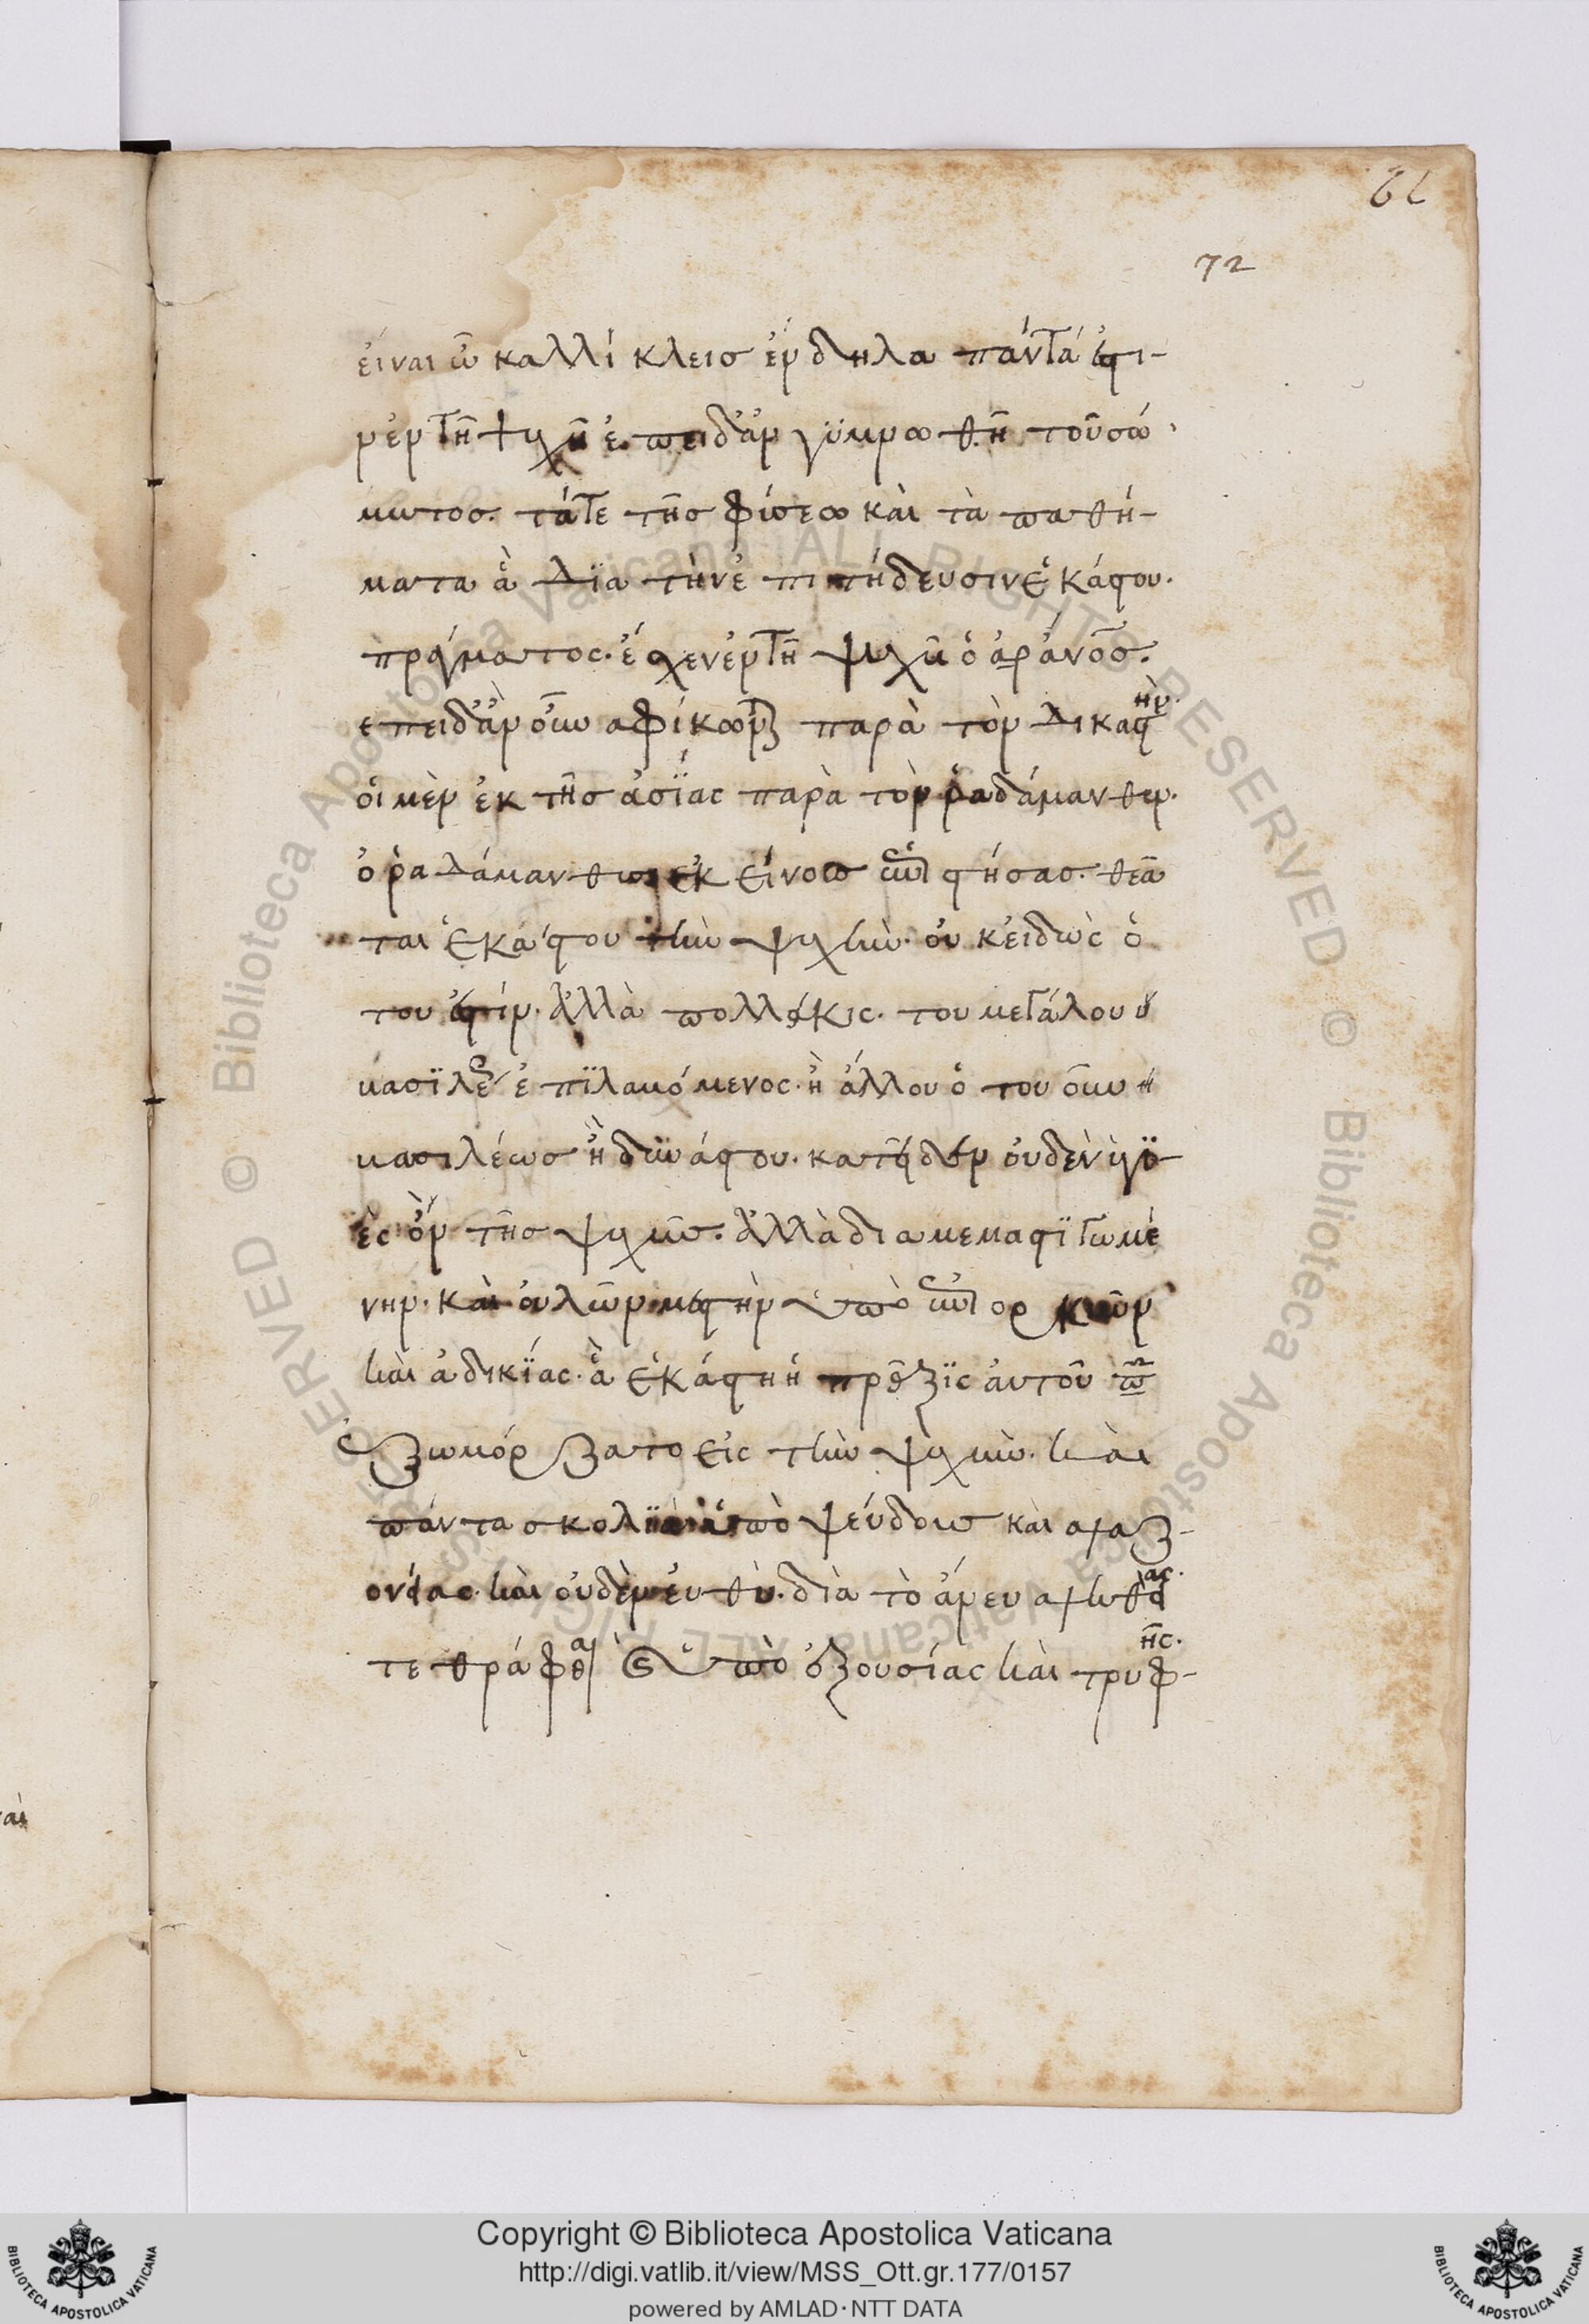 6L
72
εἶναι ὦ καλλίκλεισ ἔνδηλα πάντά ἐστι-
ν ἐν τῆ ψυχῆ ἐπειδὰν γυμνωθῆ τοῦ σώ
ματοσ. τά τε τῆσ φύσεωσ καὶ τὰ παθή-
ματα ἃ δϊα τὴν ἐπιτήδευσιν ἑκάστου.
πράγματος. ἔσχεν ἐν τῆ ψυχῆ ὁ ἄνοσ.
επειδὰν οὖν αφίκωνται παρὰ τὸν δικαστὴν.
οἱ μὲν ἐκ τῆσ ἀσΐας παρὰ τὸν ῥαδάμανθυν.
ὁ ραδάμανθυσ ἐκείνουσ ἐπιστήσασ. θεᾶ
ται ἑκάστου τὴν ψυχὴν. οὐκ εἰδὼς ὅ
του ἐστίν. ἀλλὰ πολλάκις. του μεγάλου
βασϊλέως ἐπϊλαβόμενος. ἢ ἄλλου ὁτουοῦν
βασιλέωσ ἢ δυνάστου. κατεῖδεν οὐδὲν ὑγϊ
ὲς ὂν τῆσ ψυχῆσ. ἀλλὰ διαμεμαστϊγωμέ
νην. καὶ οὐλῶν μεστὴν ὑπὸ ἐπιορκιῶν
καὶ ἀδικΐας. ἃ ἑκάστη ἡ πρᾶξϊς αὐτοῦ
ἐξωμόρξατο εἰς τὴν ψυχὴν. καὶ
πάντα σκολϊὰ ὑπὸ ψεύδουσ καὶ αλαζ-
ονίασ. καὶ οὐδὲν εὐθὺ. διὰ τὸ ἄνευ αληθείας.
τεθράφθαι καὶ ὑπὸ ἐξουσίας καὶ τρυφῆς.
αι
Copyright © Biblioteca Apostolica Vaticana
http://digi.vatlib.it/view/MSS_Ott.gr.177/0157
powered by AMLAD·NTT DATA